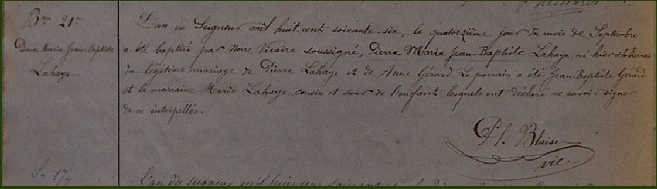 Bme 21e
Pierre Marie Jean-Baptiste
Lahaye.
L'an du Seigneur mil huit cent soixante-six, le quatorzième jour du mois de Septembre
a été baptisé par Nous Vicaire soussigné, Pierre Marie Jean-Baptiste Lahaye né hier
du légitime mariage de Pierre Lahaye et de Anne Gérard, Le parrain a été Jean Baptiste Gérard
et la marraine Marie Lahaye, cousin et sœur de l'enfant lesquels ont déclaré ne savoir signer
de ce interpellés.
Ph. Blaise
vic.
L'an du seigneur mil huit cent